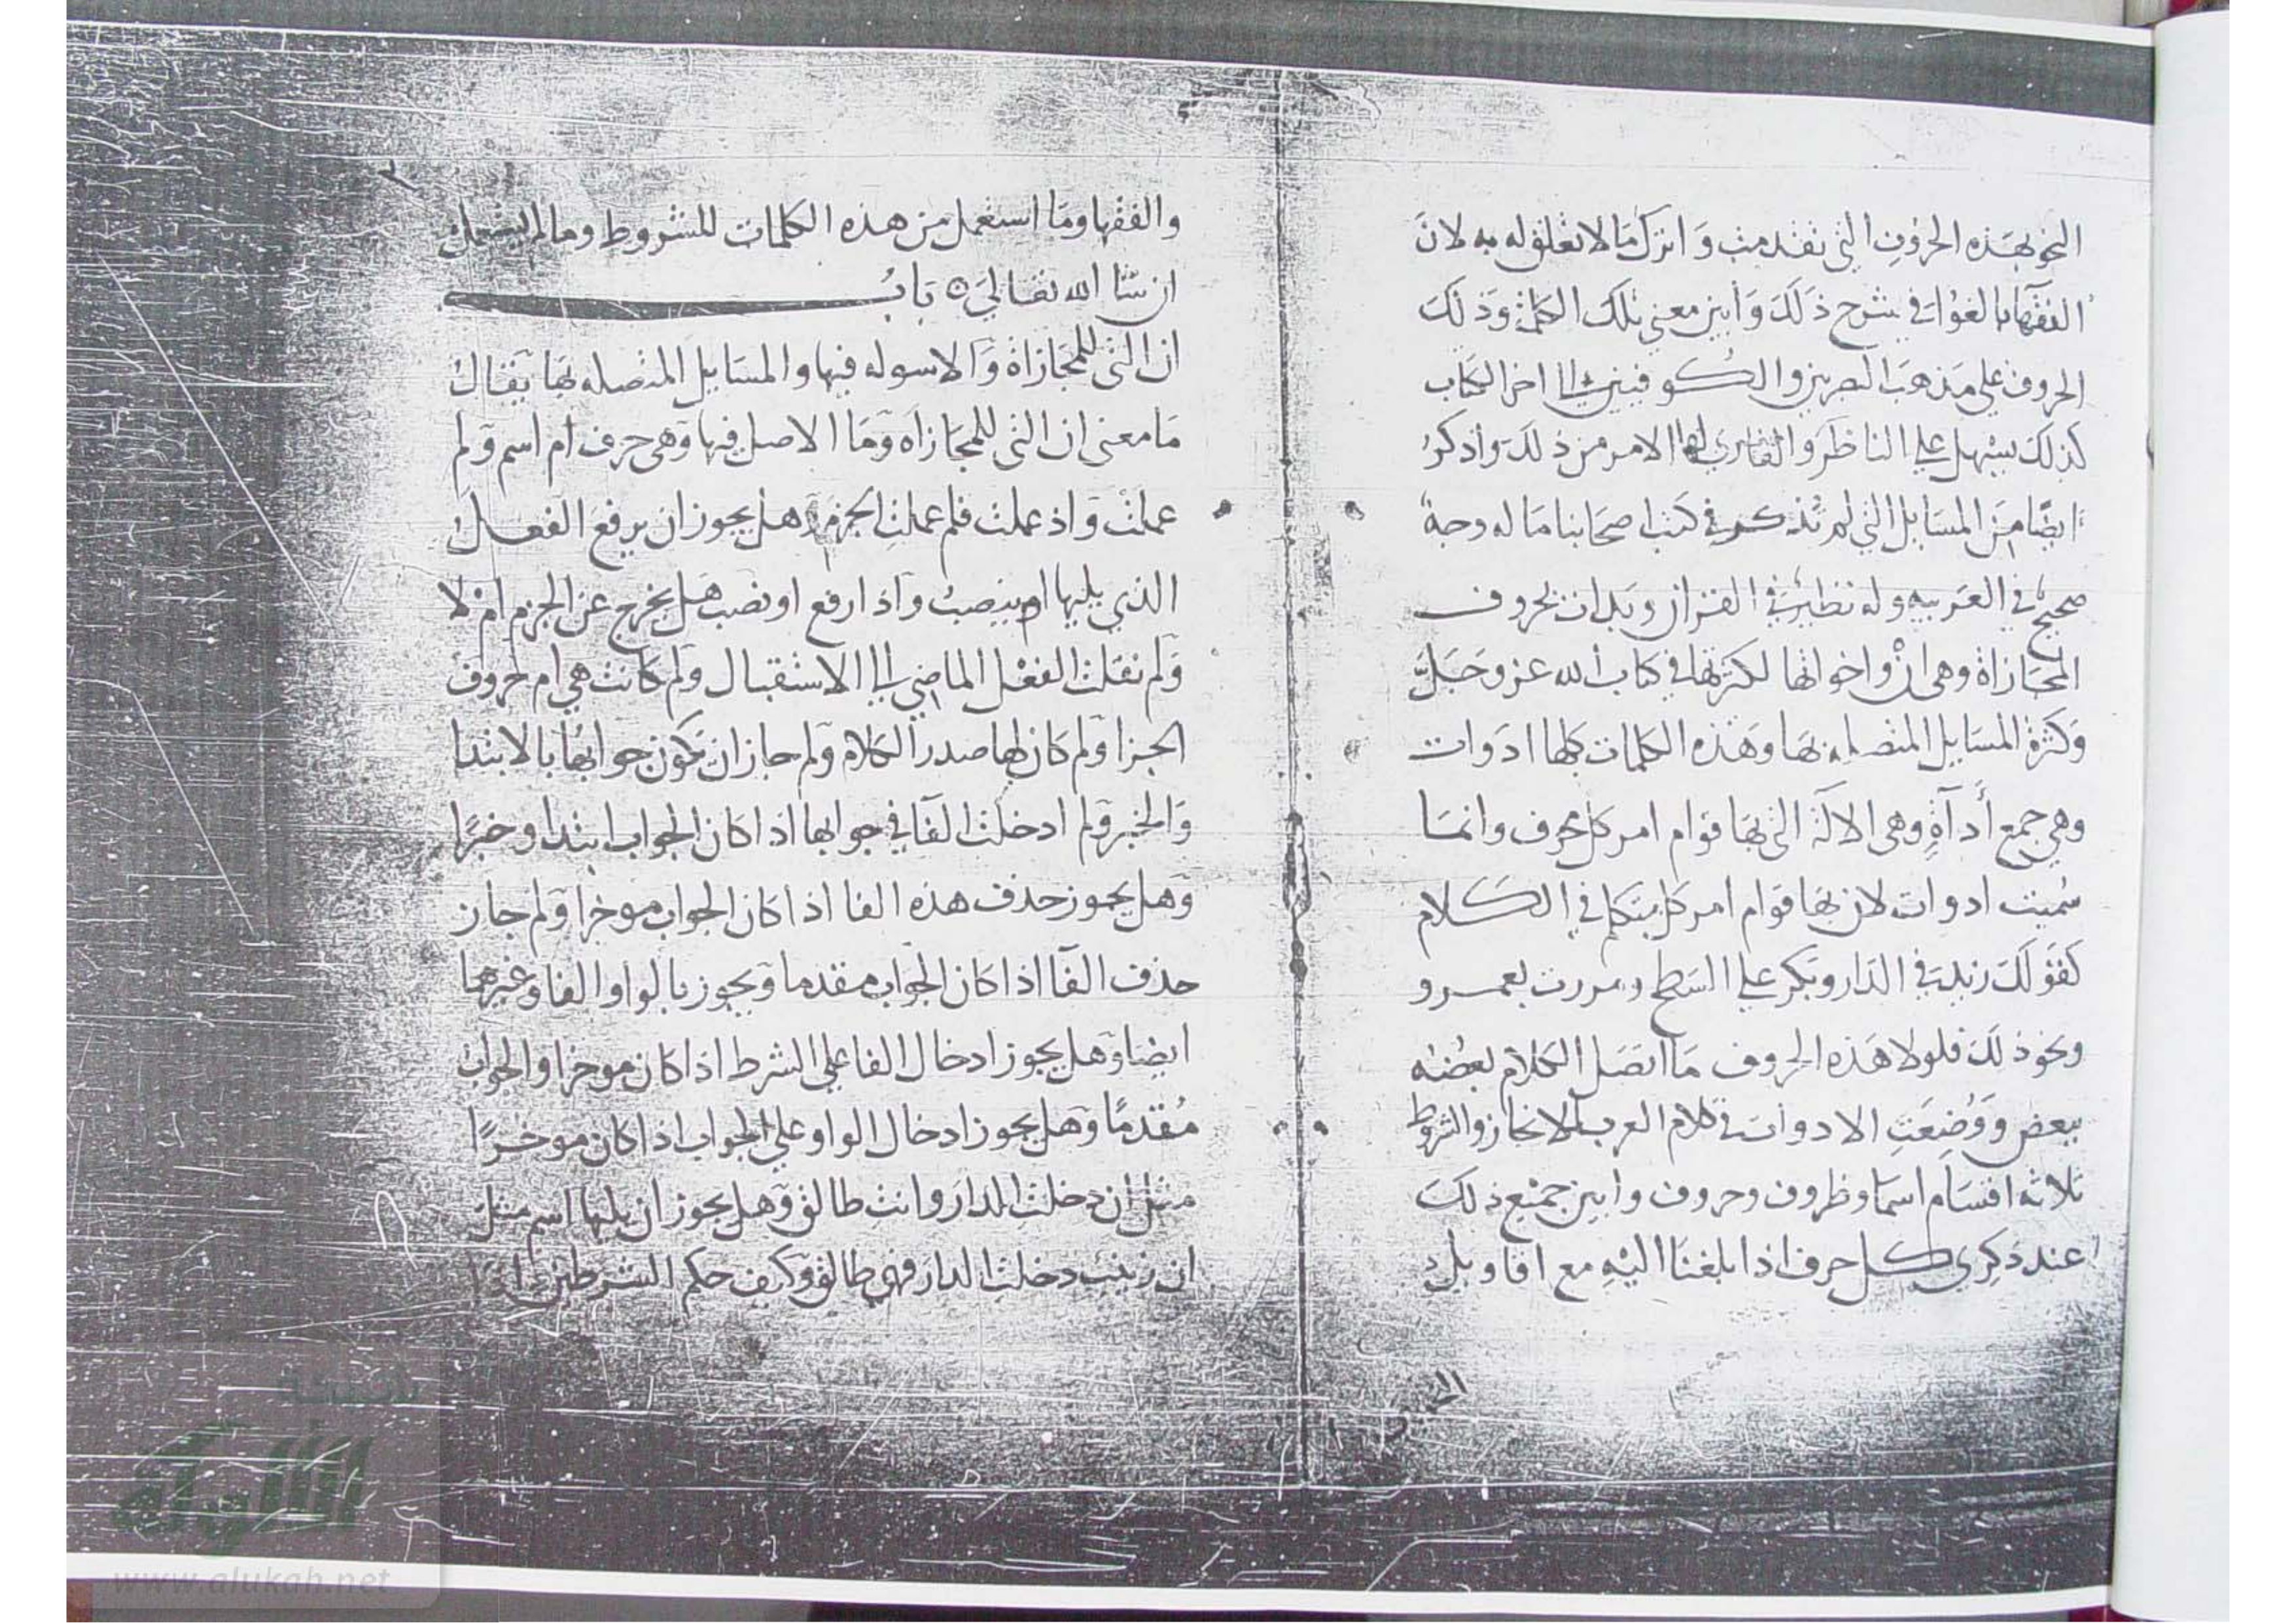 النحو بهذه الحروف التي تقدمت وَاترك مَا لا تعلق له به لانَ
الفقهآ بالغوا في شرح ذَلكَ وَأبين معنى تلك الكلمة وَذلكَ
الحروف على مَذهب البصريين والكوفيين الى اخر الكتاب
كذلكَ يسهل على الناظر والقارى الامر من ذلكَ واذكرُ
ايضًا مِنَ المسَايل التي لم تُذكر في كتب اصحابنا مَا له وجهٌ
صحيحٌ في العَربيه وله نظيرٌ في القران وبدات بحروف
المجَازاة وهى انْ واخواتها لكثرتها في كتاب الله عز وَجَلَّ
وَكثرة المسَايل المتصله بهَا وهَذه الكلمات كلها ادَوات
وهي جمع أدآةٍ وهى الالَة التى بهَا قوام امر كل محرف وانمَا
سُميت ادوات لان بهَا قوام امر كل متكلم في الكَلام
كقولكَ زيدٌ في الدَار وبَكر على السَطح ومررت بعمرو
ونحو ذلكَ فلولا هَذه الحروف مَا اتصَل الكلام بعضُه
ببعض وَوُضِعَتِ الادوات في كلام العرب للايجاز والشروط
ثلاثه اقسَام اسمَا وظروف وحروف وابين جميْع ذلكَ
عند ذكرى كل حرف اذا بلغنَا اليْهِ مع اقاويلِ
والفقها ومَا استعمل من هذه الكلمات للشروط وما لم يستعمل
ان شا الله تعالىَ ه بَابُ
ان التي للمجَازاة وَالاسوله فيها والمسَايل المتصله بهَا يقال
مَا معنى ان التى للمجَازاه وَمَا الاصل فيها وَهى حرف ام اسم وَلم
عملتْ وَاذ عملت فلم عملتِ الجزمَ وَهل يجوز ان يرفعَ الفعل
الذي يليها ام ينصبُ وَاذا رفع او نصب هَل يخرج عن الجزم امْ لا
وَلم نقلت الفعْل الماضي الى الاستقبال وَلم كَانت هي ام حروف
الجزا وَلم كَان لها صدر الكلام وَلم جاز ان يَكون جوابُها بالابتدا
وَالخبر وَلم ادخلت الفَا في جوابها اذا كان الجواب ابتدا وخبرًا
وَهل يجوز حذف هذه الفا اذا كان الجواب موخرا وَلم جاز
حذف الفَا اذا كان الجواب مقدما وَيجوز بالواو الفا وغيرهما
ايضا وَهل يجوز ادخال الفا على الشرط اذا كان موخرا والجواب
مُقدمًا وَهل يجوز ادخال الواو على الجواب اذا كان موخرًا
مثل ان دخلتِ الدار وانتِ طالق وَهل يجوز ان يليها اسم مثل
ان زينب دخلت الدار فهى طالق وَكيف حكم الشرطين اذا
شبكة
الألوكة
www.alukah.net